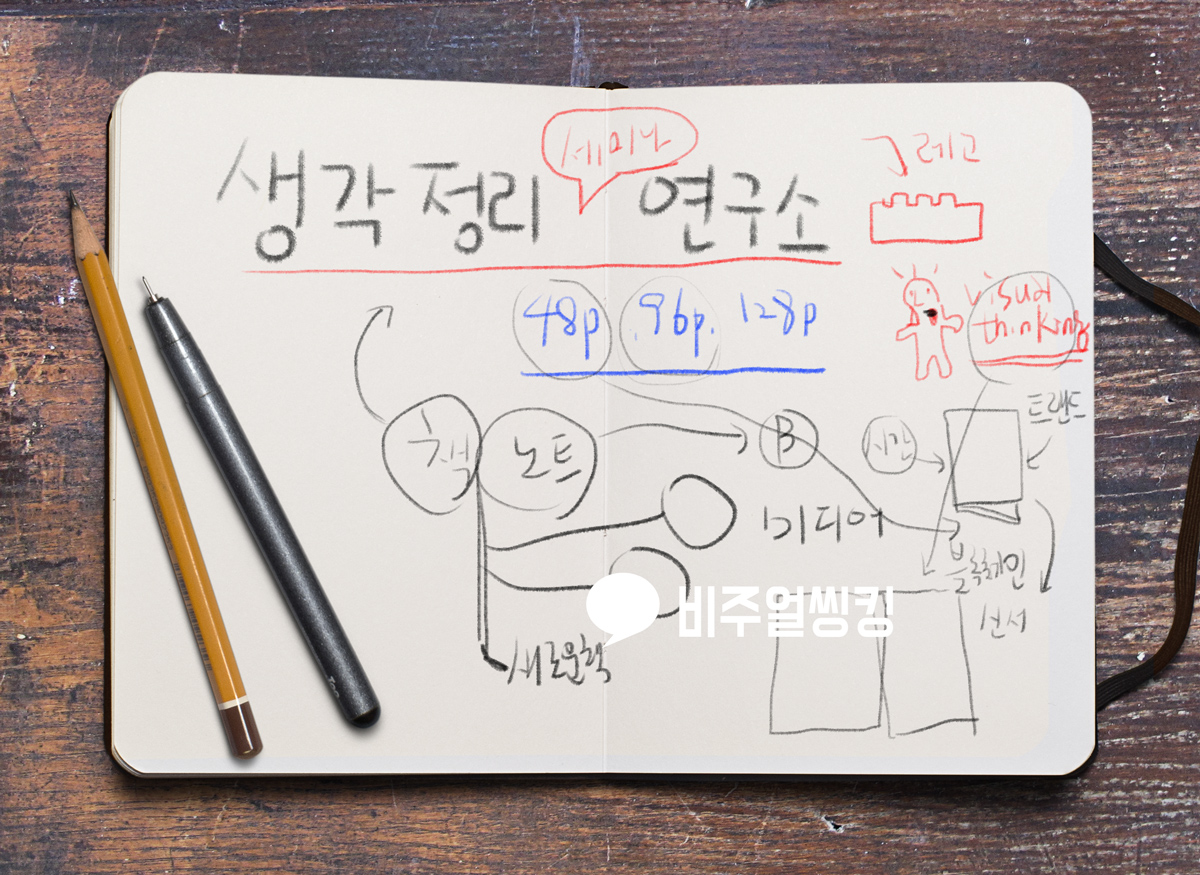 세미나
생각정리 연구소
그레고
48p 96p. 128p
visual
thinking
트랜드
책 노트
B
시간
미디어
블록체인
신서
새로운책
비주얼씽킹